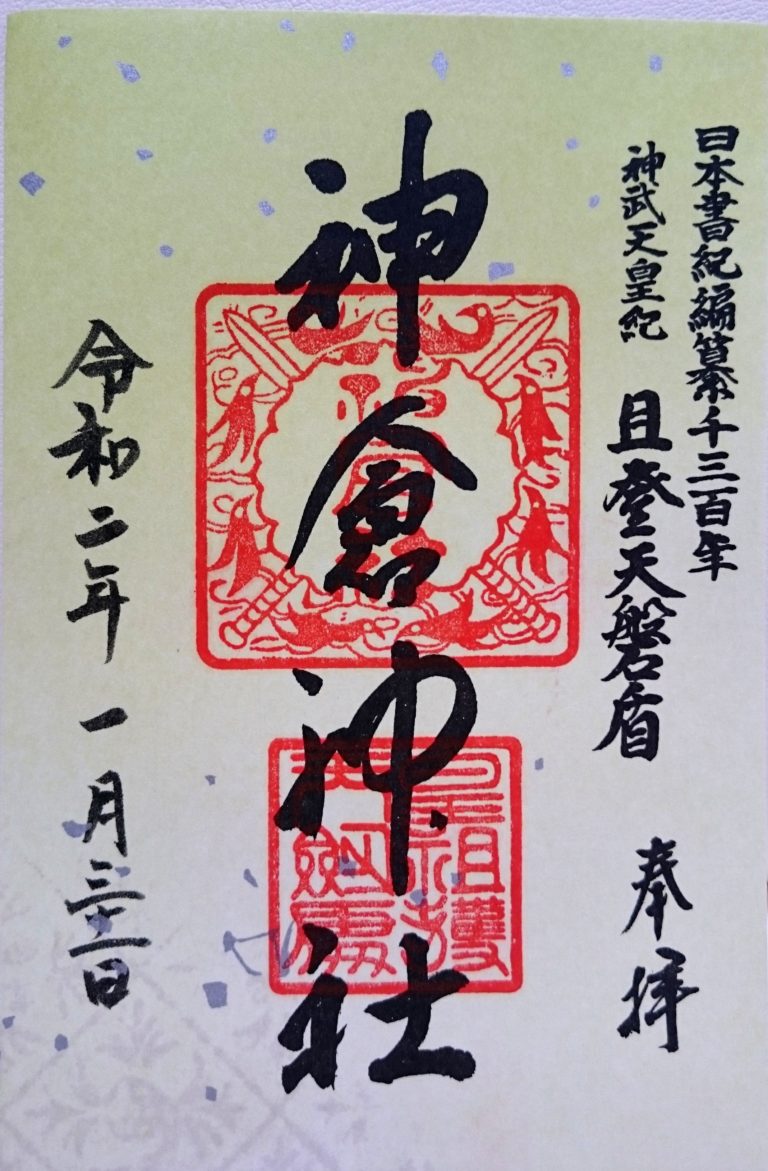 日本書紀編纂千三百年
神武天皇紀 且登天磐盾
奉拝
神倉神社
皇祖獲
令和二年 一月三十一日